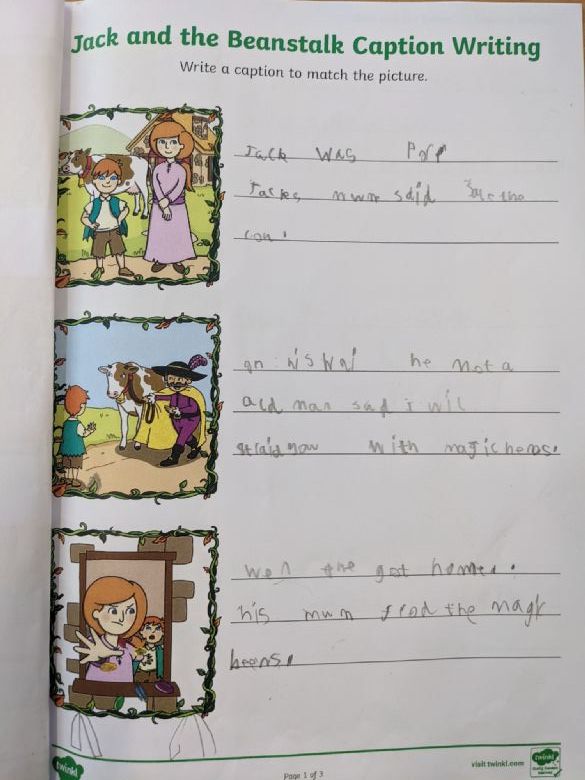 Jack and the Beanstalk Caption Writing
Write a caption to match the picture.
Jack was
Jackes mum said the
cou.
on his wai he
ald man sad i wil
with magic
wen the got home.
his mum the magk
beens.
twinkl
Page 1 of 3
visit twinkl.com
twinkl